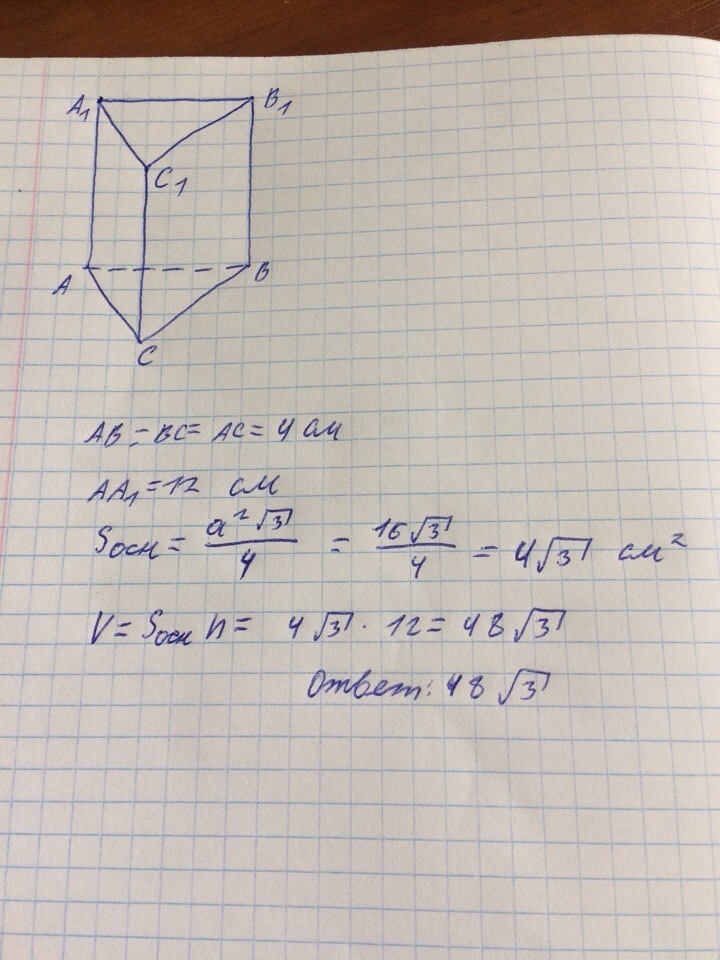 A₁ B₁
C₁
A B
C
AB = BC = AC = 4 см
AA₁ = 12 см
Sосн = a²√3/4 = 16√3/4 = 4√3 см²
V = Sосн h = 4√3 · 12 = 48√3
Ответ: 48√3